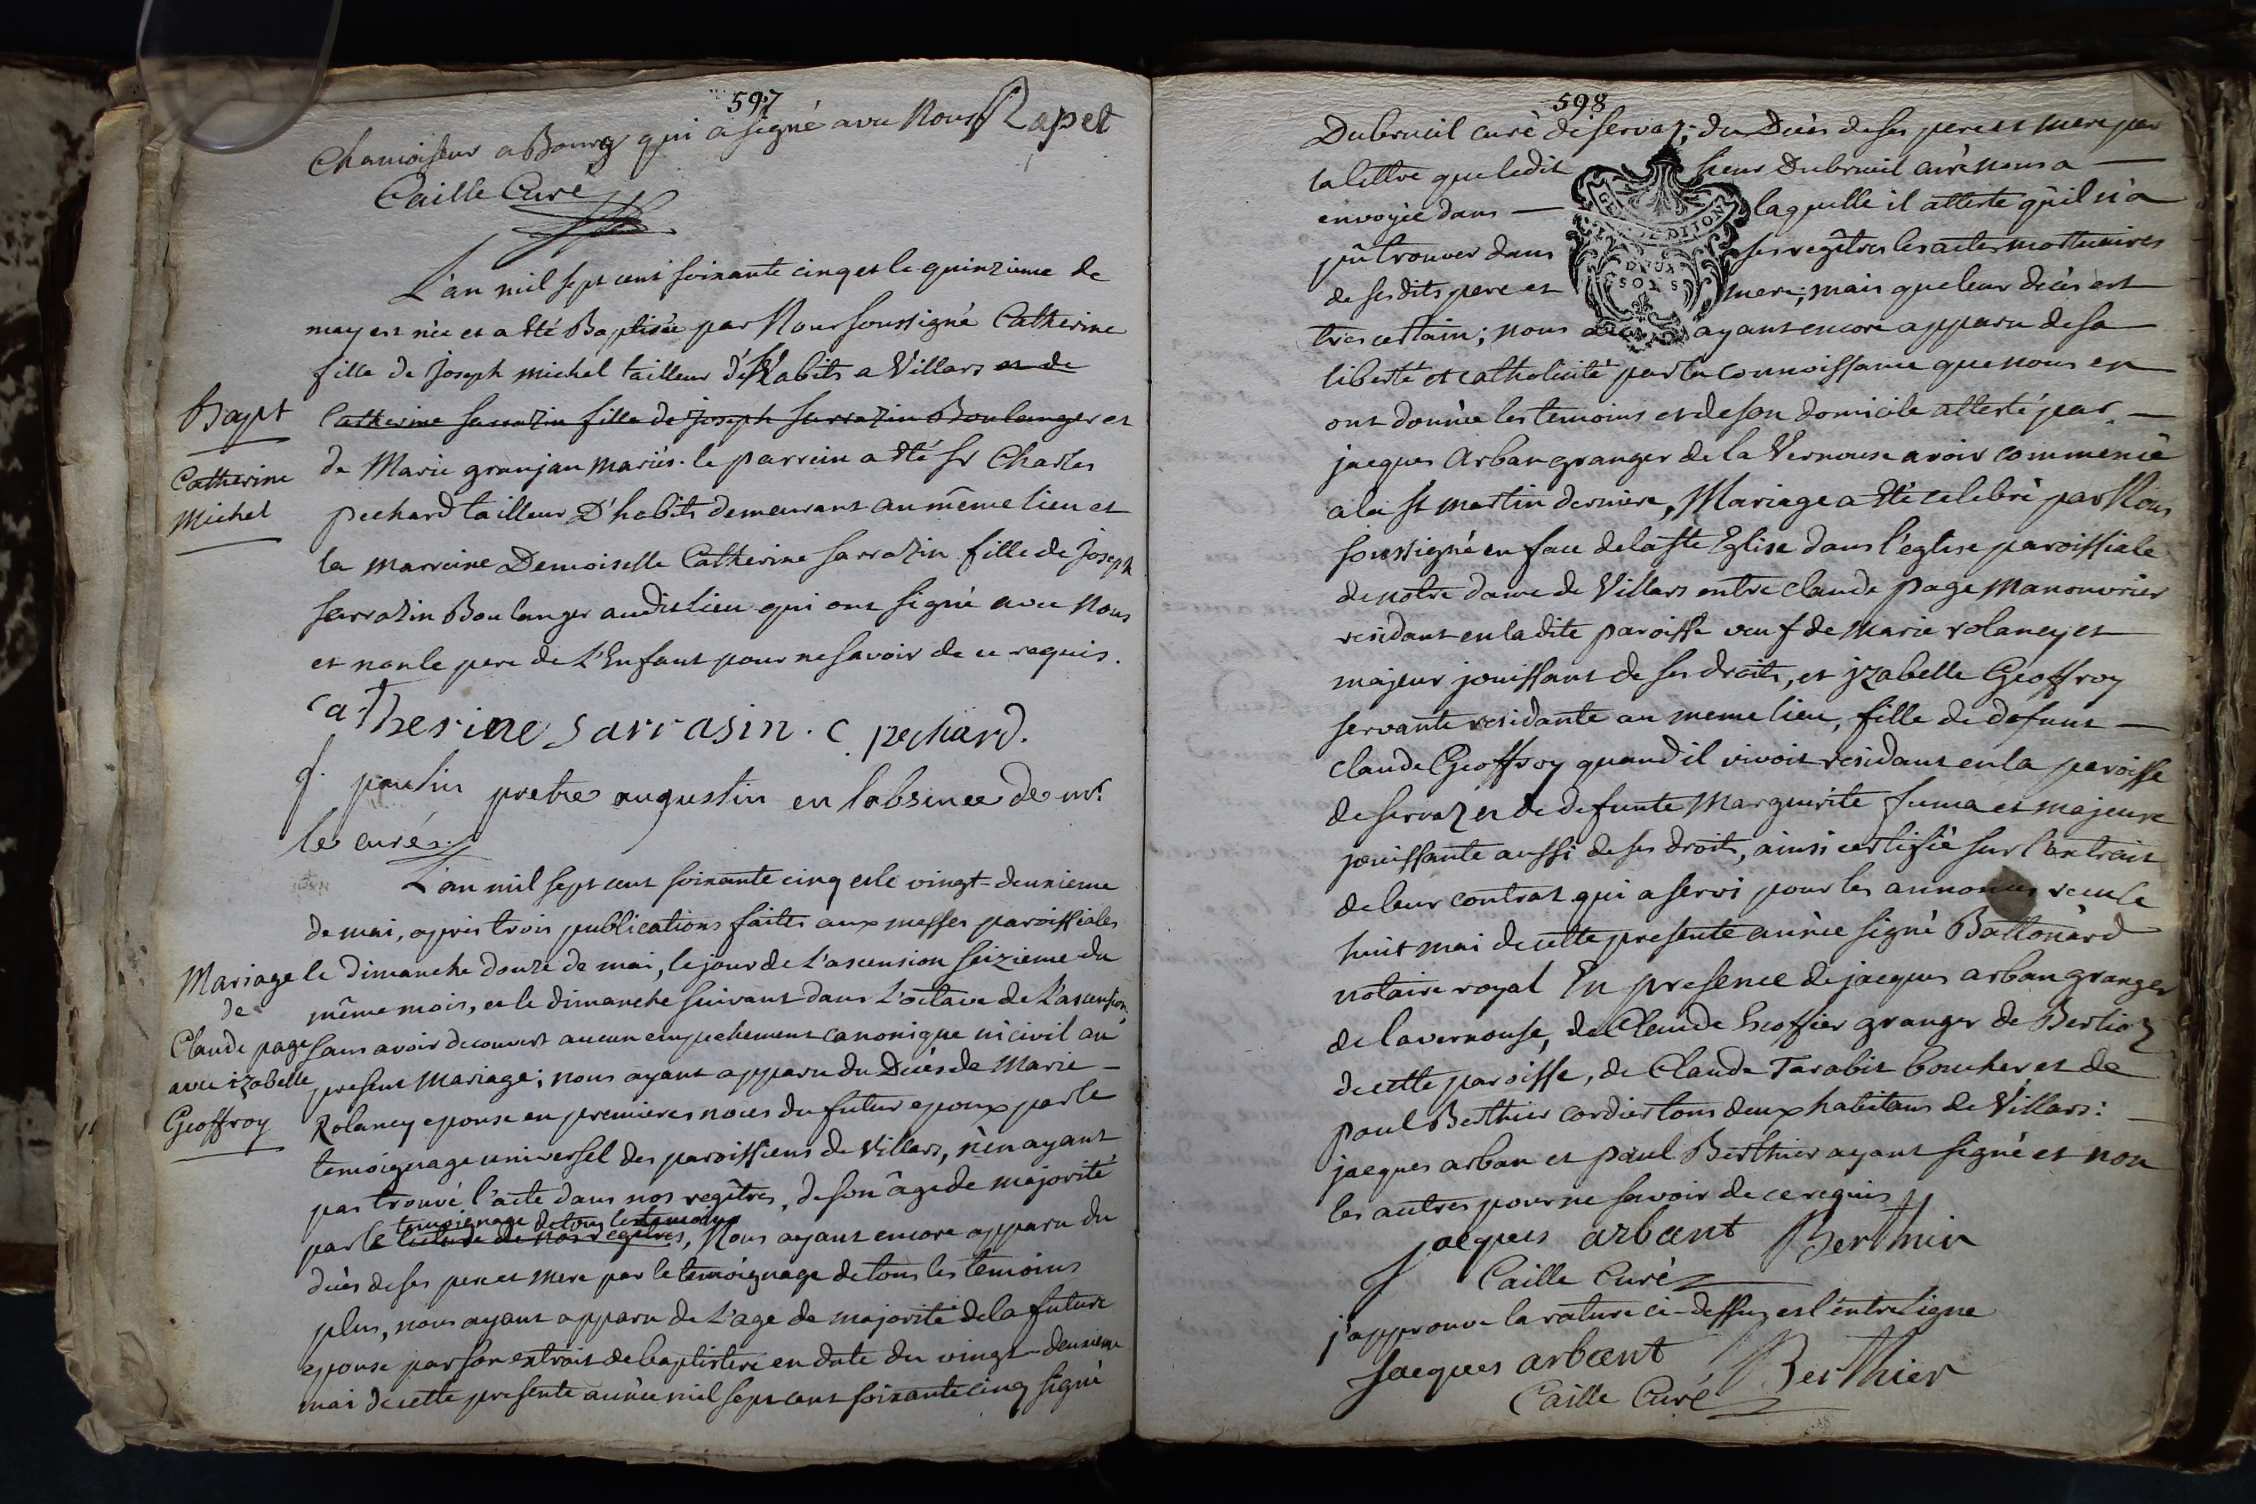 597
Chamoiseur a Bourg qui a signé avec Nous Rapet
Caille Curé
L'an mil sept cent soixante cinq et le quinzieme de
may est née et a été Baptisée par Nous soussigné Catherine
fille de Joseph michel tailleur d'habits a Villars et de
Bapt
Catherine sarrazin fille de joseph sarrazin Boulanger et
Catherine
de Marie granjan mariés. le parrein a été sr Charles
Michel
pechard tailleur D'habits demeurant au même lieu et
la marreine Demoiselle Catherine sarrazin fille de Joseph
sarrazin Boulanger audit lieu qui ont signé avec Nous
et non le pere de L'Enfant pour ne savoir de ce requis.
Catherine sarrasin. c pechard.
f. paulin pretre augustin en labsence de mr.
le curé.
L'an mil sept cent soixante cinq et le vingt-deuxieme
de mai, après trois publications faites aux messes paroissiales
Mariage
le dimanche douze de mai, le jour de L'ascension seizieme du
de
même mois, et le dimanche suivant dans L'octave de L'ascension
Claude page
sans avoir decouvert aucun empechement canonique ni civil au
avec izabelle
present Mariage; nous ayant apparu du Décès de Marie -
Geoffroy
Rolancy epouse en premieres noces du futur epoux par le
temoignage universel des paroissiens de Villars, n'en ayant
pas trouvé l'acte dans nos regîtres, de son âge de majorité
temoignage de tous les temoins
par le de nos regîtres, Nous ayant encore apparu du
décès de ses pere et mere par le temoignage de tous les temoins
plus, nous ayant apparu de L'age de majorité de la future
epouse par son extrait de baptistere en date du vingt-deuxieme
mai de cette presente année mil sept cent soixante cinq signé
598
Dubreuil curé de servaz; du Décès de ses pere et mere par
la lettre que ledit sieur Dubreuil curé nous a —
envoyée dans — laquelle il atteste qu'il n'a
pû trouver dans ses regîtres les actes mortuaires
de ses dits pere et mere; mais que leur décès est
GEN. DE DIJON
DEUX
SOLS
tres certain; nous ayant encore apparu de sa
liberté et catholicité par la connoissance que nous en
ont donnée les temoins et de son domicile attesté par —
jacques Arban granger de la Vernouse avoir commencé
a la st martin derniere, Mariage a été celebré par Nous
soussigné en face de la ste Eglise dans l'eglise paroissiale
de notre dame de Villars entre claude page manouvrier
residant en ladite paroisse veuf de marie rolancy et
majeur jouissant de ses droits, et izabelle Geoffroy
servante residante au meme lieu, fille de defunt —
claude Geoffroy quand il vivoit residant en la paroisse
de servaz et de defunte Marguerite fuma et majeure
jouissante aussi de ses droits, ainsi certifié sur l'extrait
de leur contrat qui a servi pour les annonces reçu le
huit mai de cette presente année signé Battonard
notaire royal En presence de jacques arban granger
de lavernouse, de Claude Escoffier granger de Berlioz
de cette paroisse, de Claude Tarabit boucher et de
paul Berthier cordier tous deux habitans de Villars: —
jacques arban et paul Berthier ayant signé et non
les autres pour ne savoir de ce requis
jacques arbant Berthier
Caille Curé
j'approuve la rature ci-dessus et l'entreligne
jacques arbant Berthier
Caille Curé